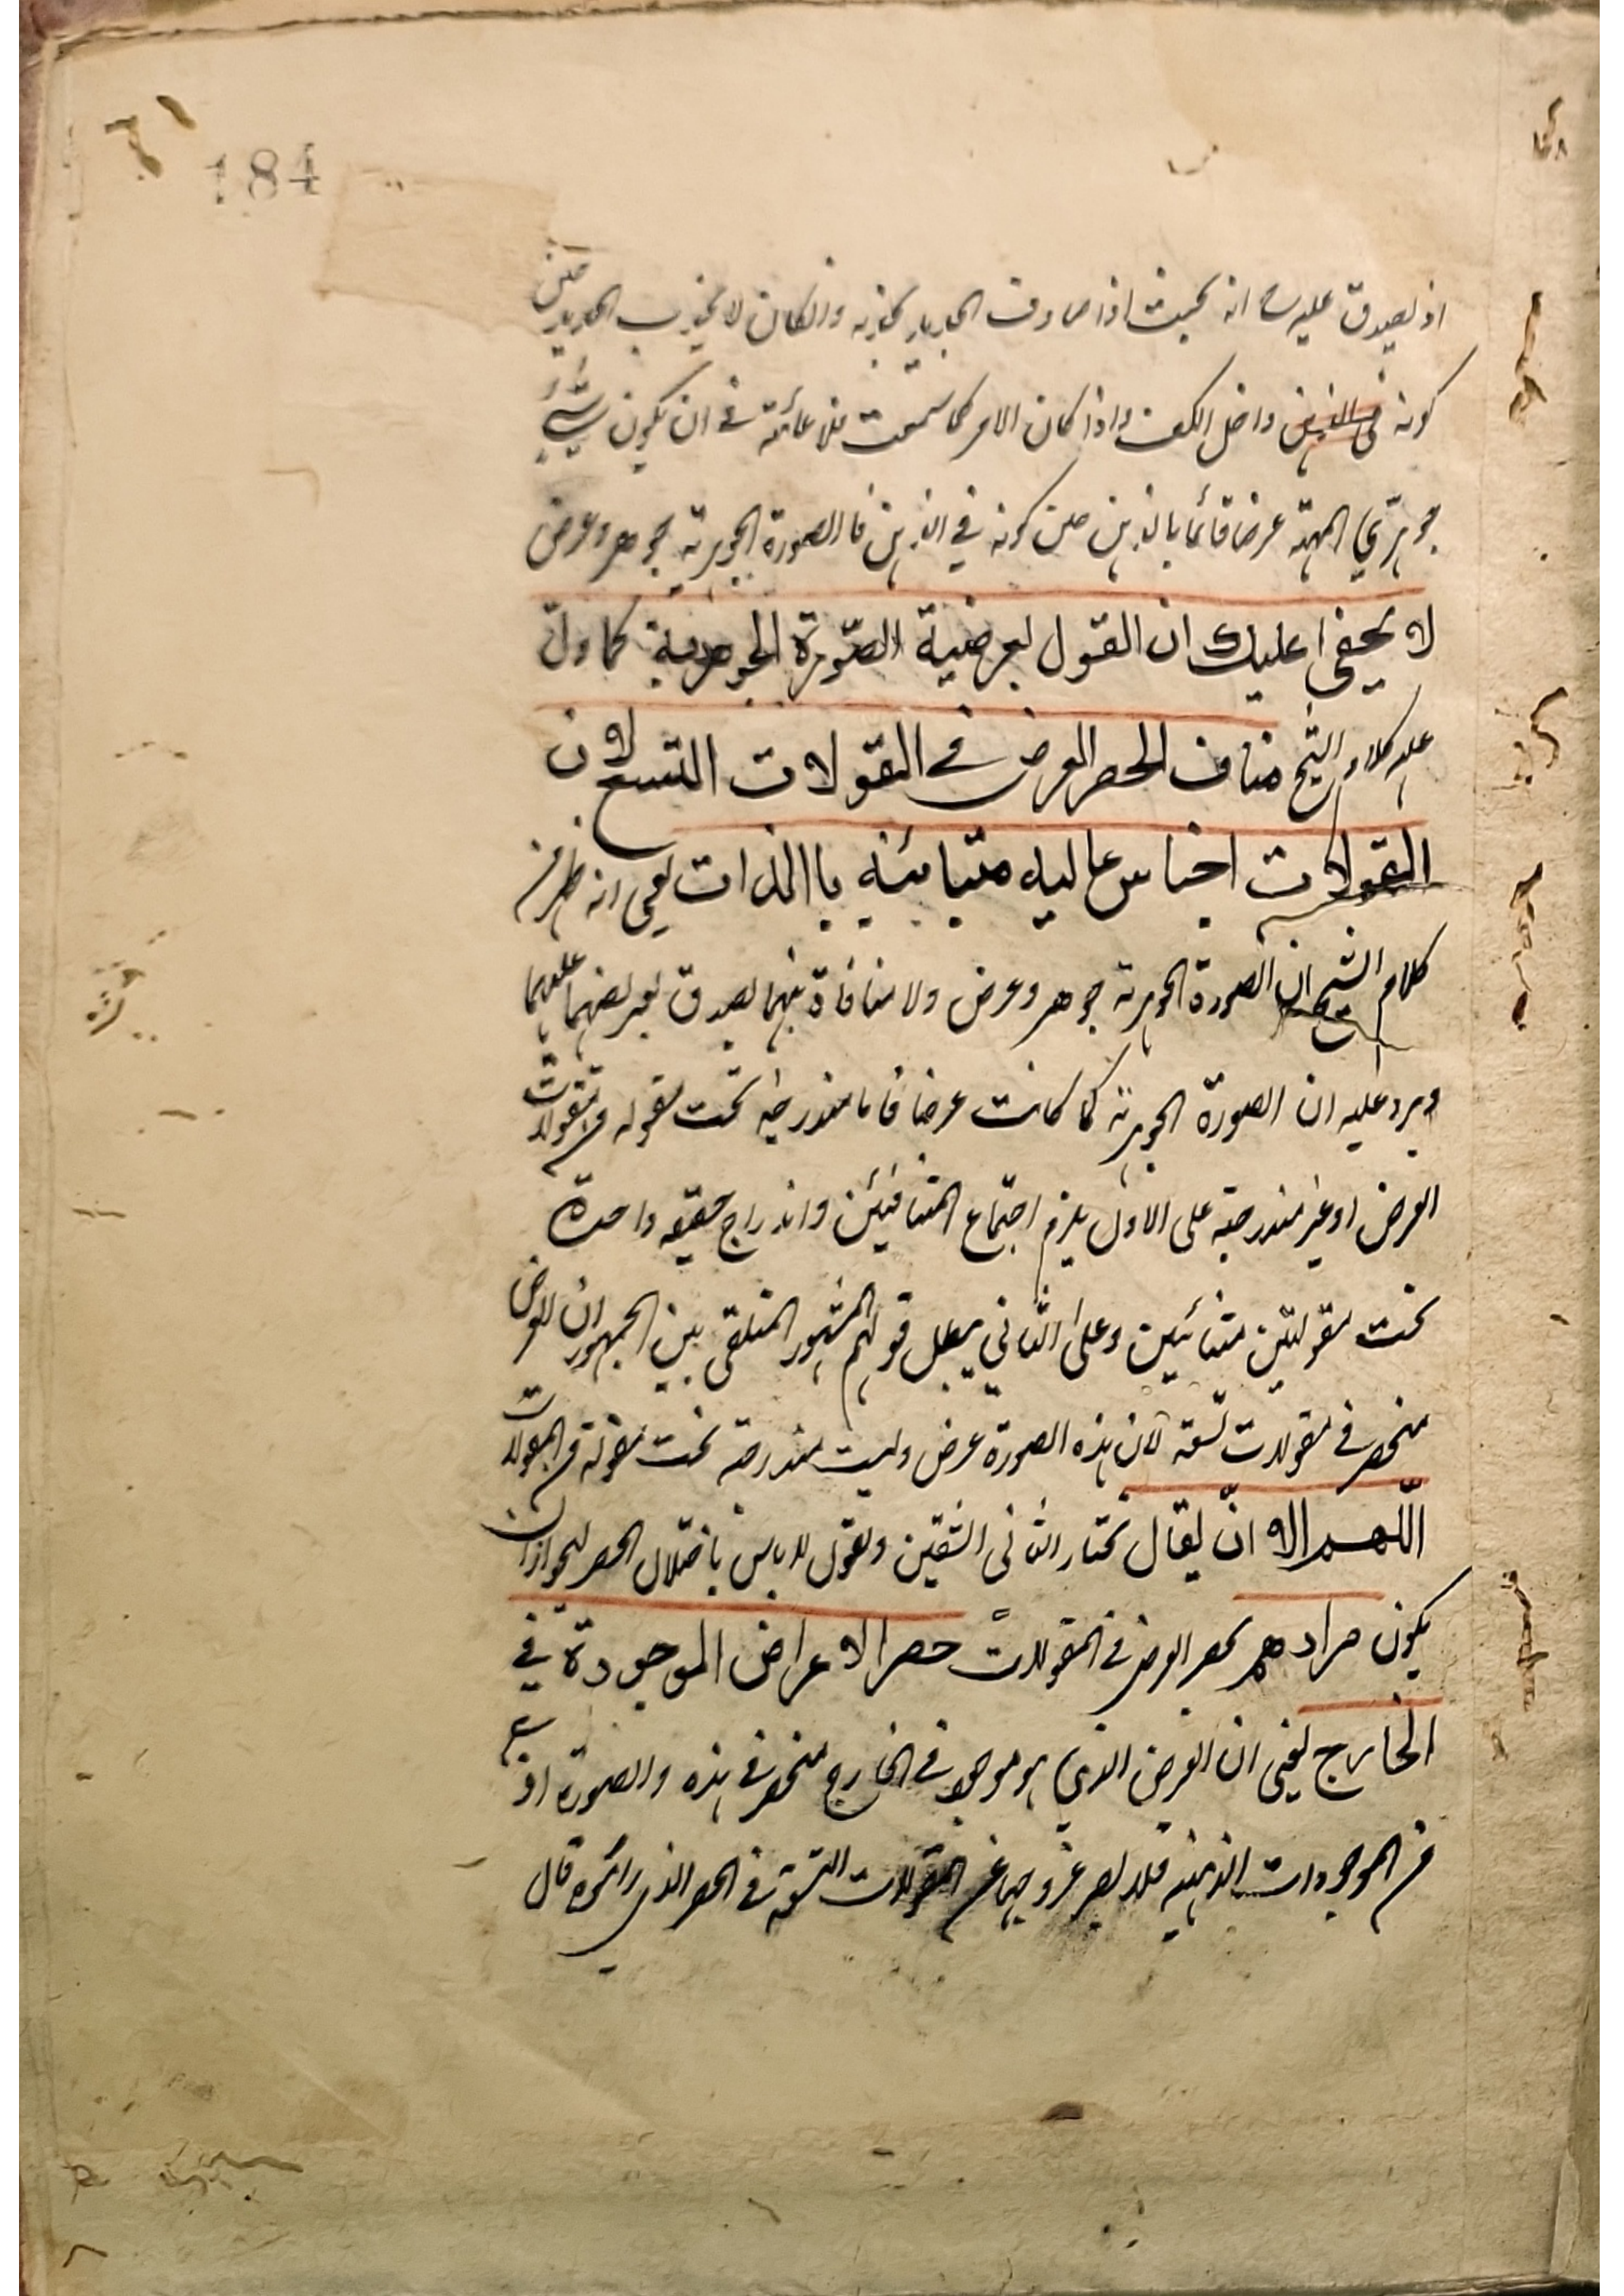 184
اذ يصدق عليه انه بحيث اذا صادف الحديد يجذبه وان كان لا يجذب الحديد حين
كونه في الذهن داخل الكف واذا كان الامر كما سمعت فلا عائمة في ان يكون شيء
جوهري المهية عرضا قائما بالذهن حين كونه في الذهن فالصورة الجوهرية جوهر وعرض
لا يخفى عليك ان القول لعرضية الصورة الجوهرية كما دل
عليه كلام الشيخ مناف لحصر العرض في المقولات التسع لان
المقولات اجناس عاليه متبائنه باالذات يعني انه ظهر من
كلام الشيخ ان الصورة الجوهرية جوهر وعرض ولا منافاة بينهما لصدق تعريفهما عليهما
ويرد عليه ان الصورة الجوهرية كما كانت عرضا فاما مندرجه تحت مقوله من مقولات
العرض او غير مندرجة على الاول يلزم اجتماع المتنافيين واندراج حقيقه واحدة
تحت مقولتين متبائنين وعلى الثاني يبطل قولهم المشهور المتلقى بين الجمهور ان العرض
منحصر في مقولات تسعة لان هذه الصورة عرض وليست مندرجة تحت مقولة من المقولات
اللهم الا ان يقال نختار الثاني الشقين ونقول لا باس باختلال الحصر لجواز ان
يكون مرادهم بحصر العرض في المقولات حصر الاعراض الموجودة في
الخارج يعني ان العرض الذي هو موجود في الخارج منحصر في هذه والصورة
من الموجودات الذهنيه فلا يضر خروجها عن المقولات التسعة في الحصر الذي قال